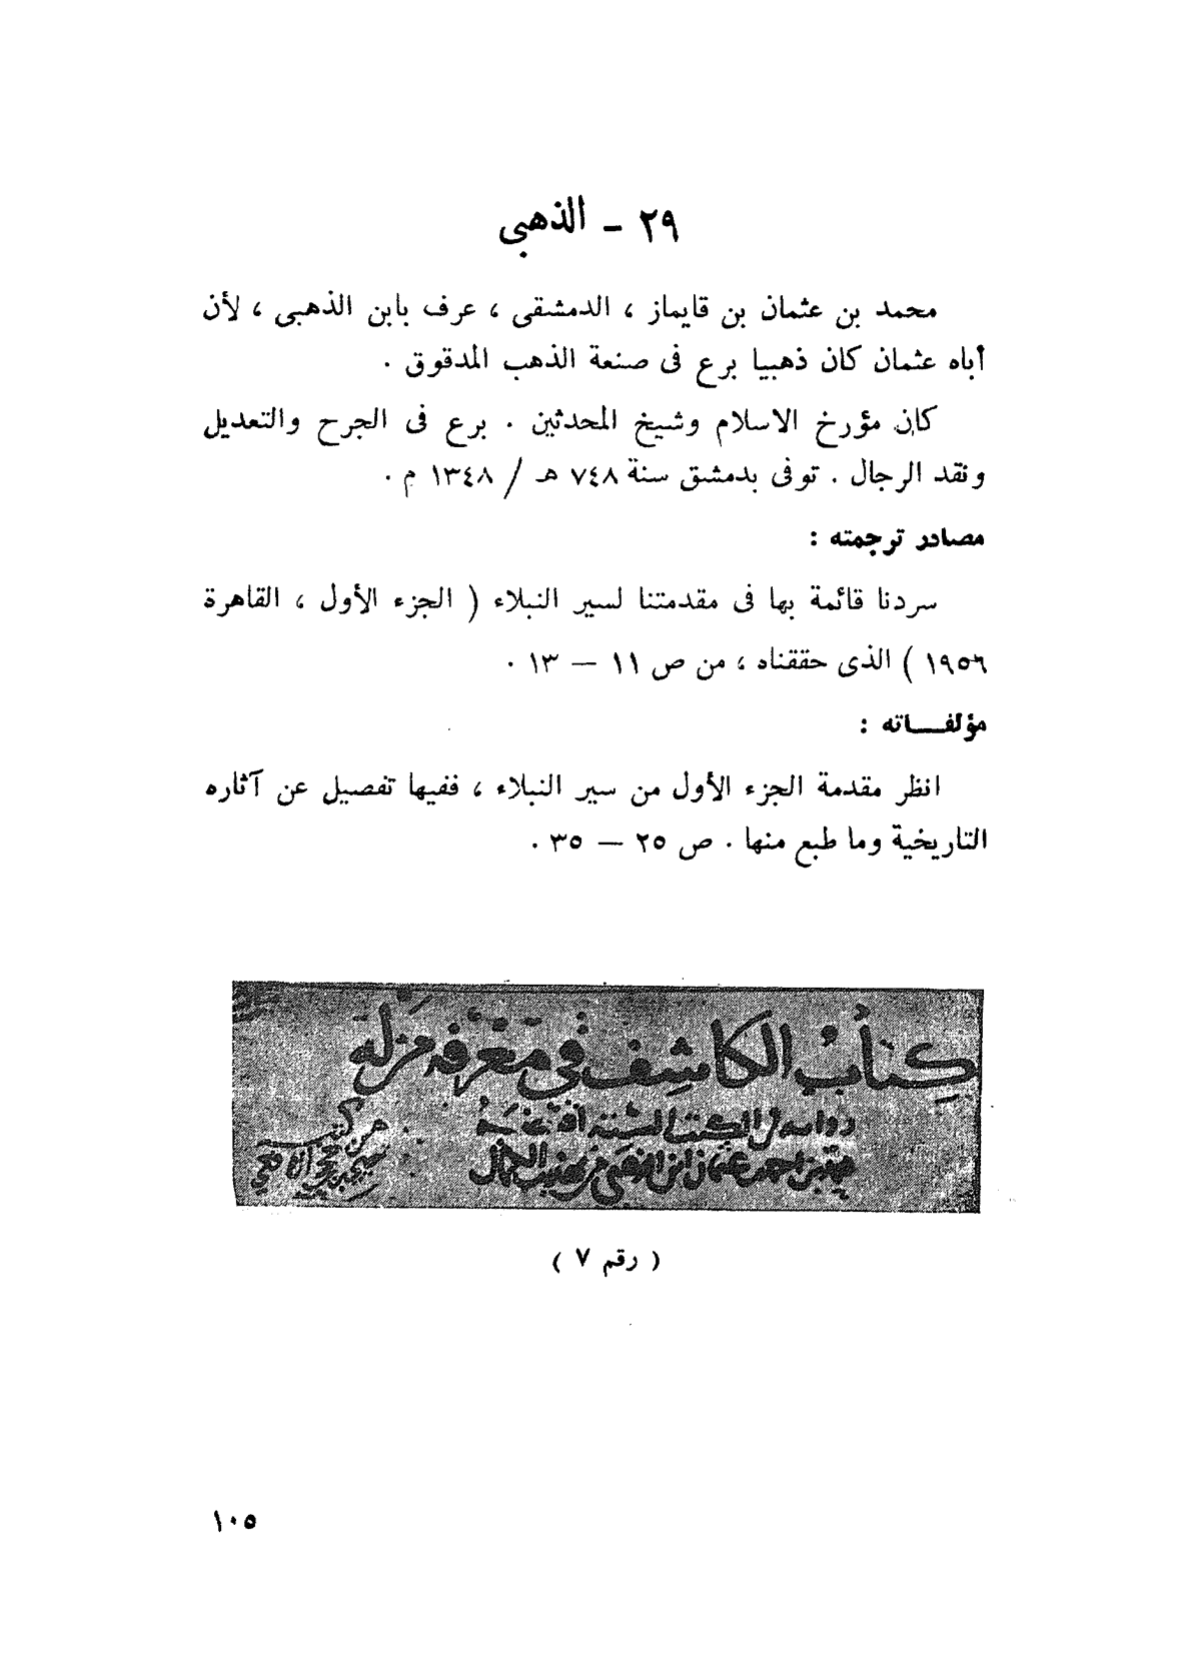 ٢٩ - الذهبى
محمد بن عثمان بن قايماز ، الدمشقى ، عرف بابن الذهبى ، لأن
أباه عثمان كان ذهبيا برع فى صنعة الذهب المدقوق .
كان مؤرخ الاسلام وشيخ المحدثين . برع فى الجرح والتعديل
ونقد الرجال . توفى بدمشق سنة ٧٤٨ هـ / ١٣٤٨ م .
مصادر ترجمته :
سردنا قائمة بها فى مقدمتنا لسير النبلاء ( الجزء الأول ، القاهرة
١٩٥٦ ) الذى حققناه ، من ص ١١ — ١٣ .
مؤلفــاته :
انظر مقدمة الجزء الأول من سير النبلاء ، ففيها تفصيل عن آثاره
التاريخية وما طبع منها . ص ٢٥ — ٣٥ .
كتاب الكاشف في معرفة من له
رواية في الكتب الستة
محمد بن احمد بن عثمان ابن الذهبي
من كتب
( رقم ٧ )
١٠٥